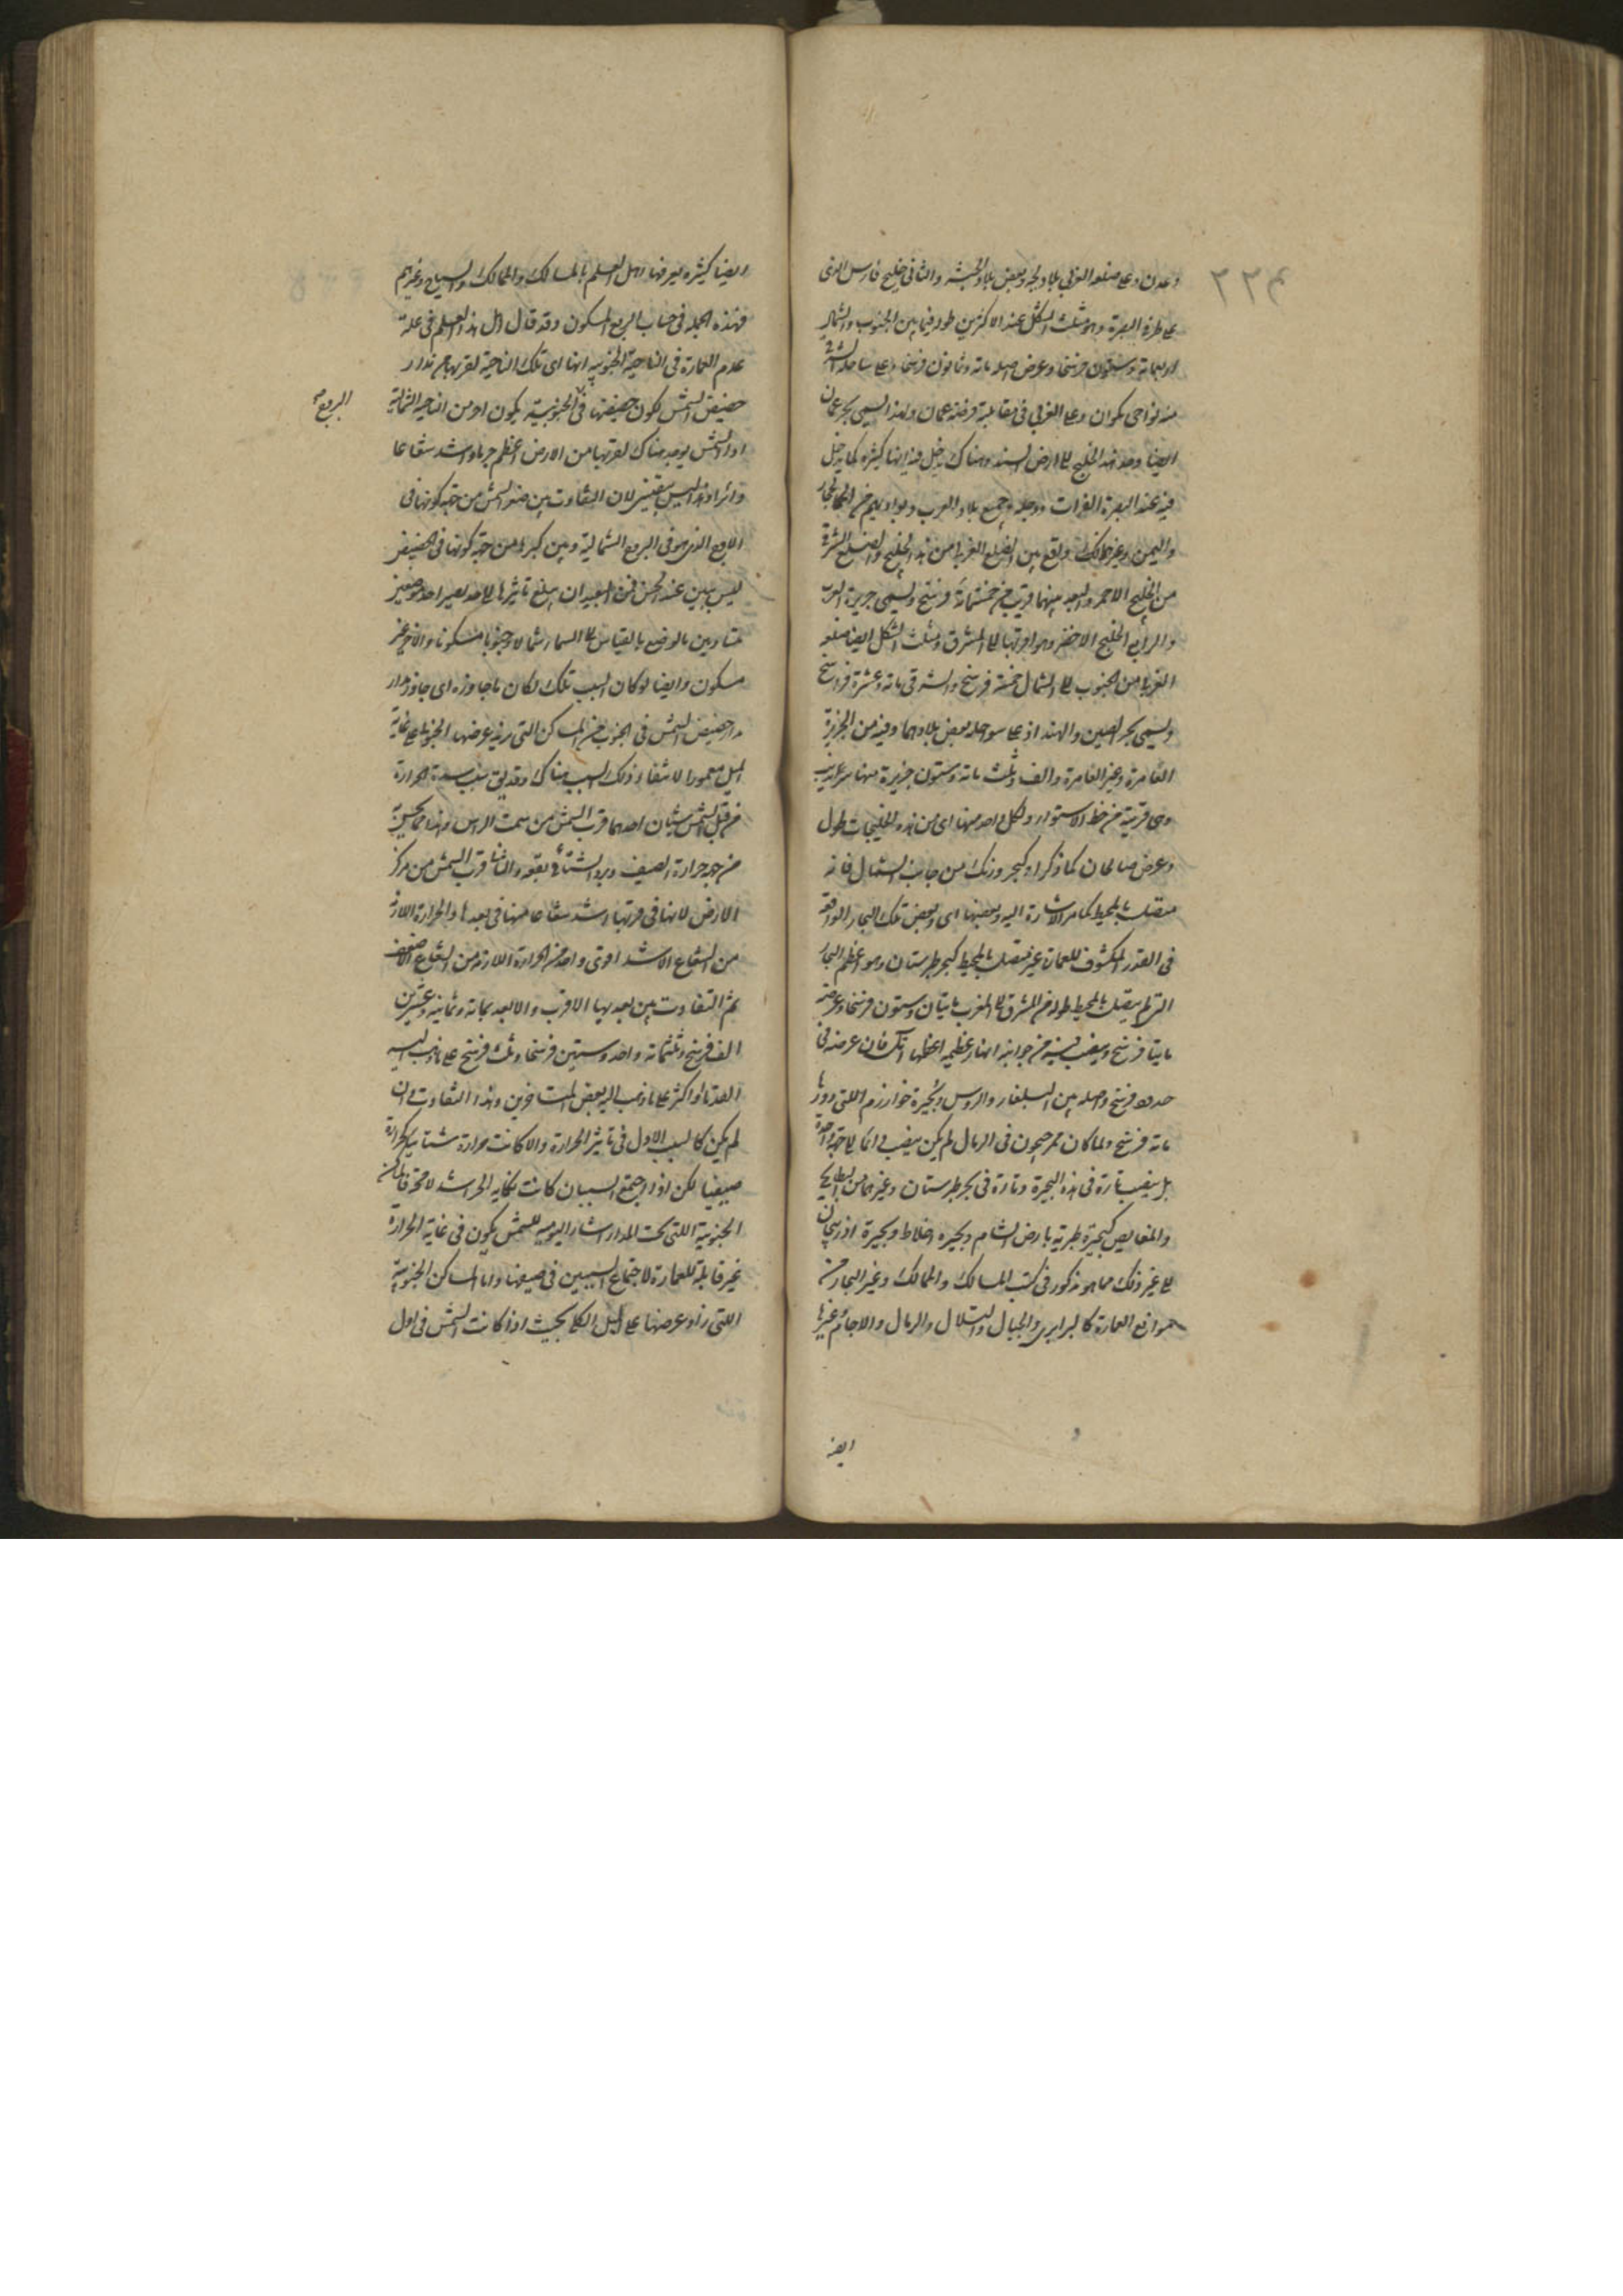 ٢٣٤
وعدن وعلى ضلعه الغربى بلاد البجه وبعض بلاد الحبشه والثانى خليج فارس الذى
على طرفه البصرة وهو مثلث الشكل عند الاكثرين طوله فيما بين الجنوب والشمال
اربعماية وستون فرسخا وعرض اصله ماية وثمانون فرسخا وعلى ساحله الشرقى
منه نواحى مكران وعلى الغربى فى مقابلته فرضة عمان ولهذا يسمى بحر عمان
ايضا وعند هذا الخليج الى ارض السند وهناك يدخل فيه انهار كثيره كما يدخل
فيه عند البصرة الفرات ودجله وجميع بلاد العرب وبواديهم من الحجاز
واليمن وغيرهما كذلك واقع بين الضلع الغربى من هذا الخليج والضلع الشرقى
من الخليج الاحمر والبعد بينهما قريب من خمسمائة فرسخ ويسمى جزيرة العرب
والرابع الخليج الاخضر وهو اقربها الى المشرق ومثلث الشكل ايضا ضلعه
الغربى من الجنوب الى الشمال خمسة فرسخ والشرقى ماية وعشرة فراسخ
ويسمى بحر الصين والهند اذ على سواحله بعض بلادهما وفيه من الجزيرة
العامرة وغير العامرة والف وثلث ماية وستون جزيرة منها سرنديب
وهى قريبة من خط الاستواء ولكل واحد منها اى من هذه الخليجات طول
وعرض صالحان كما ذكرا وكبحر ورنك من جانب الشمال فانه
متصلة بالمحيط كما مر الاشارة اليه وبعضها اى وبعض تلك البحار الواقعة
فى القدر المكشوف للعمارة غير متصلة بالمحيط كبحر طبرستان وهو اعظم البحار
التى لم يتصل بالمحيط طوله من المشرق الى المغرب مايتان وستون فرسخا وعرضه
مايتا فرسخ ويصب فيه من جوانبه انهار عظيمه اعظمها اتل فان عرضه فى
حدود فرسخ واصله بين البلغار والروس وبحيرة خوارزم اللتى دورها
ماية فرسخ ولما كان ممر جيحون فى الرمال لم يكن يصب فى انما لا جهة واحدة
بل يصب تارة فى هذه البحيرة وتارة فى بحر طبرستان وغيرهما من البطايح
والمغايص كبحيرة طبريه بارض الشام وبحيره اخلاط وبحيرة اذربيجان
الى غير ذلك مما هو مذكور فى كتب المسالك والممالك وغير البحار من
موانع العمارة كالبرارى والجبال والتلال والرمال والاجام وغيرها
ايضا
ايضا كثيره يعرفها اهل العلم بالمسالك والممالك والسياح وغيرهم
فهذه الجمله فى حساب الربع المسكون وقد قال اهل هذا العلم فى علة
عدم العمارة فى الناحية الجنوبيه انها اى تلك الناحية لقربها من مدار
حضيض الشمس لكون حضيضها فى الجنوبية يكون احر من الناحية الشمالية
الربع
اذ الشمس يوجد هناك لقربها من الارض اعظم جرما واشد شعاعا
وتاثرا وهذا ليس بيقينى لان التفاوت بين صغر الشمس من جهة كونها فى
الاوج الذى هو فى الربع الشمالية وبين كبره من جهة كونها فى الحضيض
ليس يتبين عند الحس فمن البعيد ان يبلغ تاثيرها الى حد يصير احد موضعين
متساويين بالوضع بالقياس الى السماء شمالا وجنوبا مسكونا والاخر غير
مسكون وايضا لو كان السبب تلك لكان ما جاوزه اى جاوز مدار
مدار حضيض الشمس فى الجنوب من المساكن التى يزيد عرضها الجنوبى على غاية
الميل معمورا لانتفاء ذلك السبب هناك وقد يقال سبب شدة الحرارة
من قبل الشمس شيئان احدهما قرب الشمس من سمت الراس وهذا مما يحس به
من جهة حرارة الصيف وبرد الشتاء بقوة والثانى قرب الشمس من مركز
الارض لانها فى قربها اشد شعاعا منها فى بعدها والحرارة اللازمة
من الشعاع الاشد اقوى واحد من الحرارة اللازمة من الشعاع الاضعف
ثم التفاوت بين بعديها الاقرب والابعد بماية وثمانية وعشرين
الف فرسخ وثلثماية واحد وستين فرسخا وثلث فرسخ على ما ذهب اليه
القدماء او اكثر على ما ذهب اليه بعض المتاخرين وهذا التفاوت ان
لم يكن كالسبب الاول فى تاثير الحرارة والا كانت حرارة شتائها كحرارة
صيفها لكن اذا اجتمع السببان كانت نكاية الحر اشد لا محالة فالمساكن
الجنوبية اللتى تحت المدار المشار اليه للشمس يكون فى غاية الحرارة
غير قابلة للعمارة لاجتماع السببين فى صيفها واما المساكن الجنوبية
اللتى زاد عرضها على الميل الكلى بحيث اذا كانت الشمس فى اول